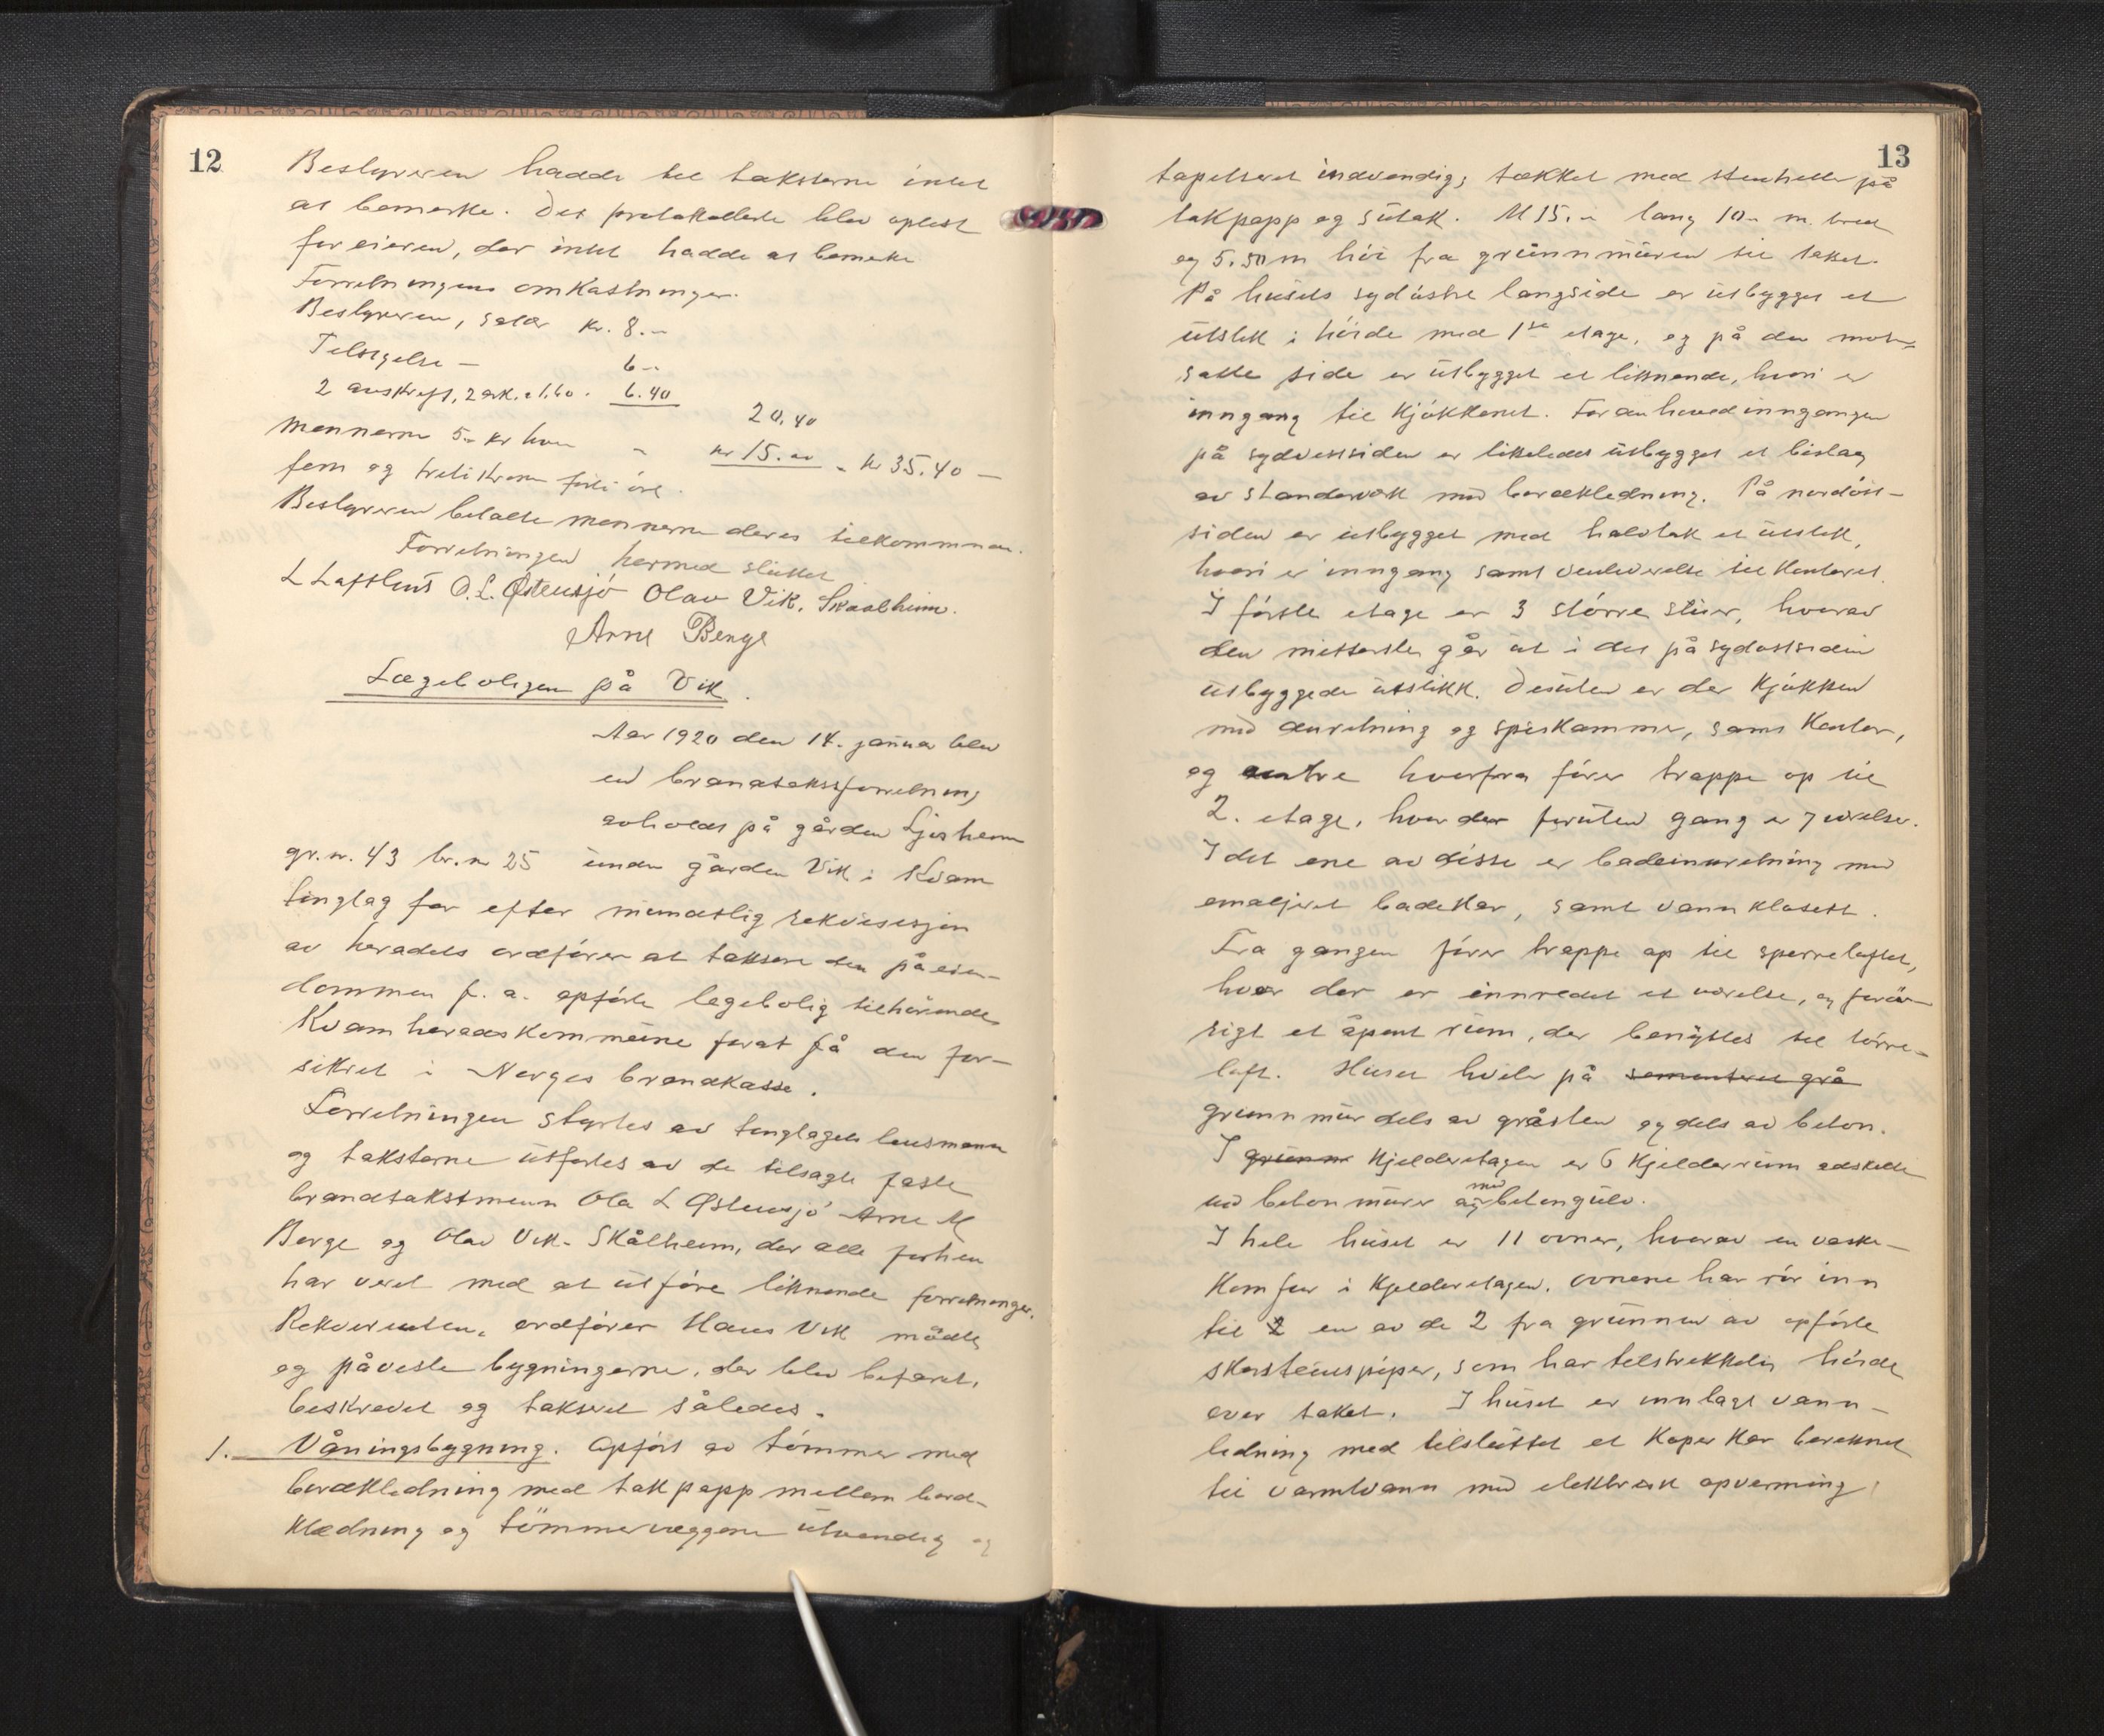 12
Bestyreren hadde til taksterne intet
at bemerke. Det protokollerte blev oplest
for eieren, der intet hadde at bemerke
Forretningens omkostninger.
Bestyreren, salær kr. 8.-
Tilsigelse - 6-
2 avskrift, 2 ark. a 1.60. 6.40
20.40
Mennerne 5.- kr hver - kr 15.00 - kr 35.40 -
fem og treti kroner førti øre.
Bestyreren betalte mennerne deres tilkommende.
Forretningen hermed sluttet
L Lofthus O. L. Østensjø Olav Vik, Skaalheim.
Arne Berge
Lægeboligen på Vik.
Aar 1920 den 14. januar blev
en brandtakstforretning
avholdt på gården Ljosheim
gr. nr. 43 br. nr 25 under gården Vik i Kvam
tinglag for efter mundtlig rekvisisjon
av heradets ordfører at taksere den på eien-
dommen f. a. opførte legebolig tilhørende
Kvam heradskommune forat få den for-
sikret i Norges brandkasse.
Forretningen styrtes av tinglagets lensmann
og taksterne utførtes av de tilsagte faste
brandtakstmenn Ola L Østensjø Arne M
Berge og Olav Vik-Skålheim, der alle forhen
har veret med at utføre liknende forretninger.
Rekvirenten, ordfører Hans Vik mødte
og påviste bygningerne, der blev befaret,
beskrevet og taksert således.
1. Våningsbygning. Opført av tømmer med
bordkledning med takpapp mellem bord-
klædning og tømmervæggene utvendig og
13
tapetseret indvendig, tækket med stenheller på
takpapp og sutak. Ul 15.- lang 10.- m. bred
og 5.50 m høi fra grunnmuren til taket.
På husets sydøstre langside er utbygget et
utstikk i høide med 1ste etage, og på den mot-
satte side er utbygget et liknende, hvori er
inngang til kjøkkenet. Foran hovedinngangen
på sydvestsiden er likeledes utbygget et bislag
av standerverk med bordkledning. På nordøst-
siden er utbygget med halvtak et utstikk,
hvori er inngang samt venteverelse til kontoret.
I første etage er 3 større stuer, hvorav
den mitterste går ut i det på sydostsiden
utbyggede utstikk. Desuten er der kjøkken
med anretning og spiskammer, samt kontor,
og entre hvorfra fører trappe op til
2. etage, hvor der foruten gang er 7 verelser.
I det ene av disse er badeinnretning med
emaljeret badekar, samt vannklosett.
Fra gangen fører trappe op til sperreloftet,
hvor der er innredet et værelse, og forøv-
rigt et åpent rum, der benyttes til tørre-
loft. Huset hviler på sementeret grå
grunnmur dels av gråsten og dels av beton.
I grunn Kjelderetagen er 6 kjelderrum adskilte
ved betonmurer og med betongulv.
I hele huset er 11 ovner, hvorav en vaske-
komfur i kjelderetagen. Ovnene har rør inn
til 2 en av de 2 fra grunnen av opførte
skorstenspiper, som har tilstrekkelig høide
over taket. I huset er innlagt vann-
ledning med tilsluttet et koperkar bereknet
til varmtvann med elektrisk opverming